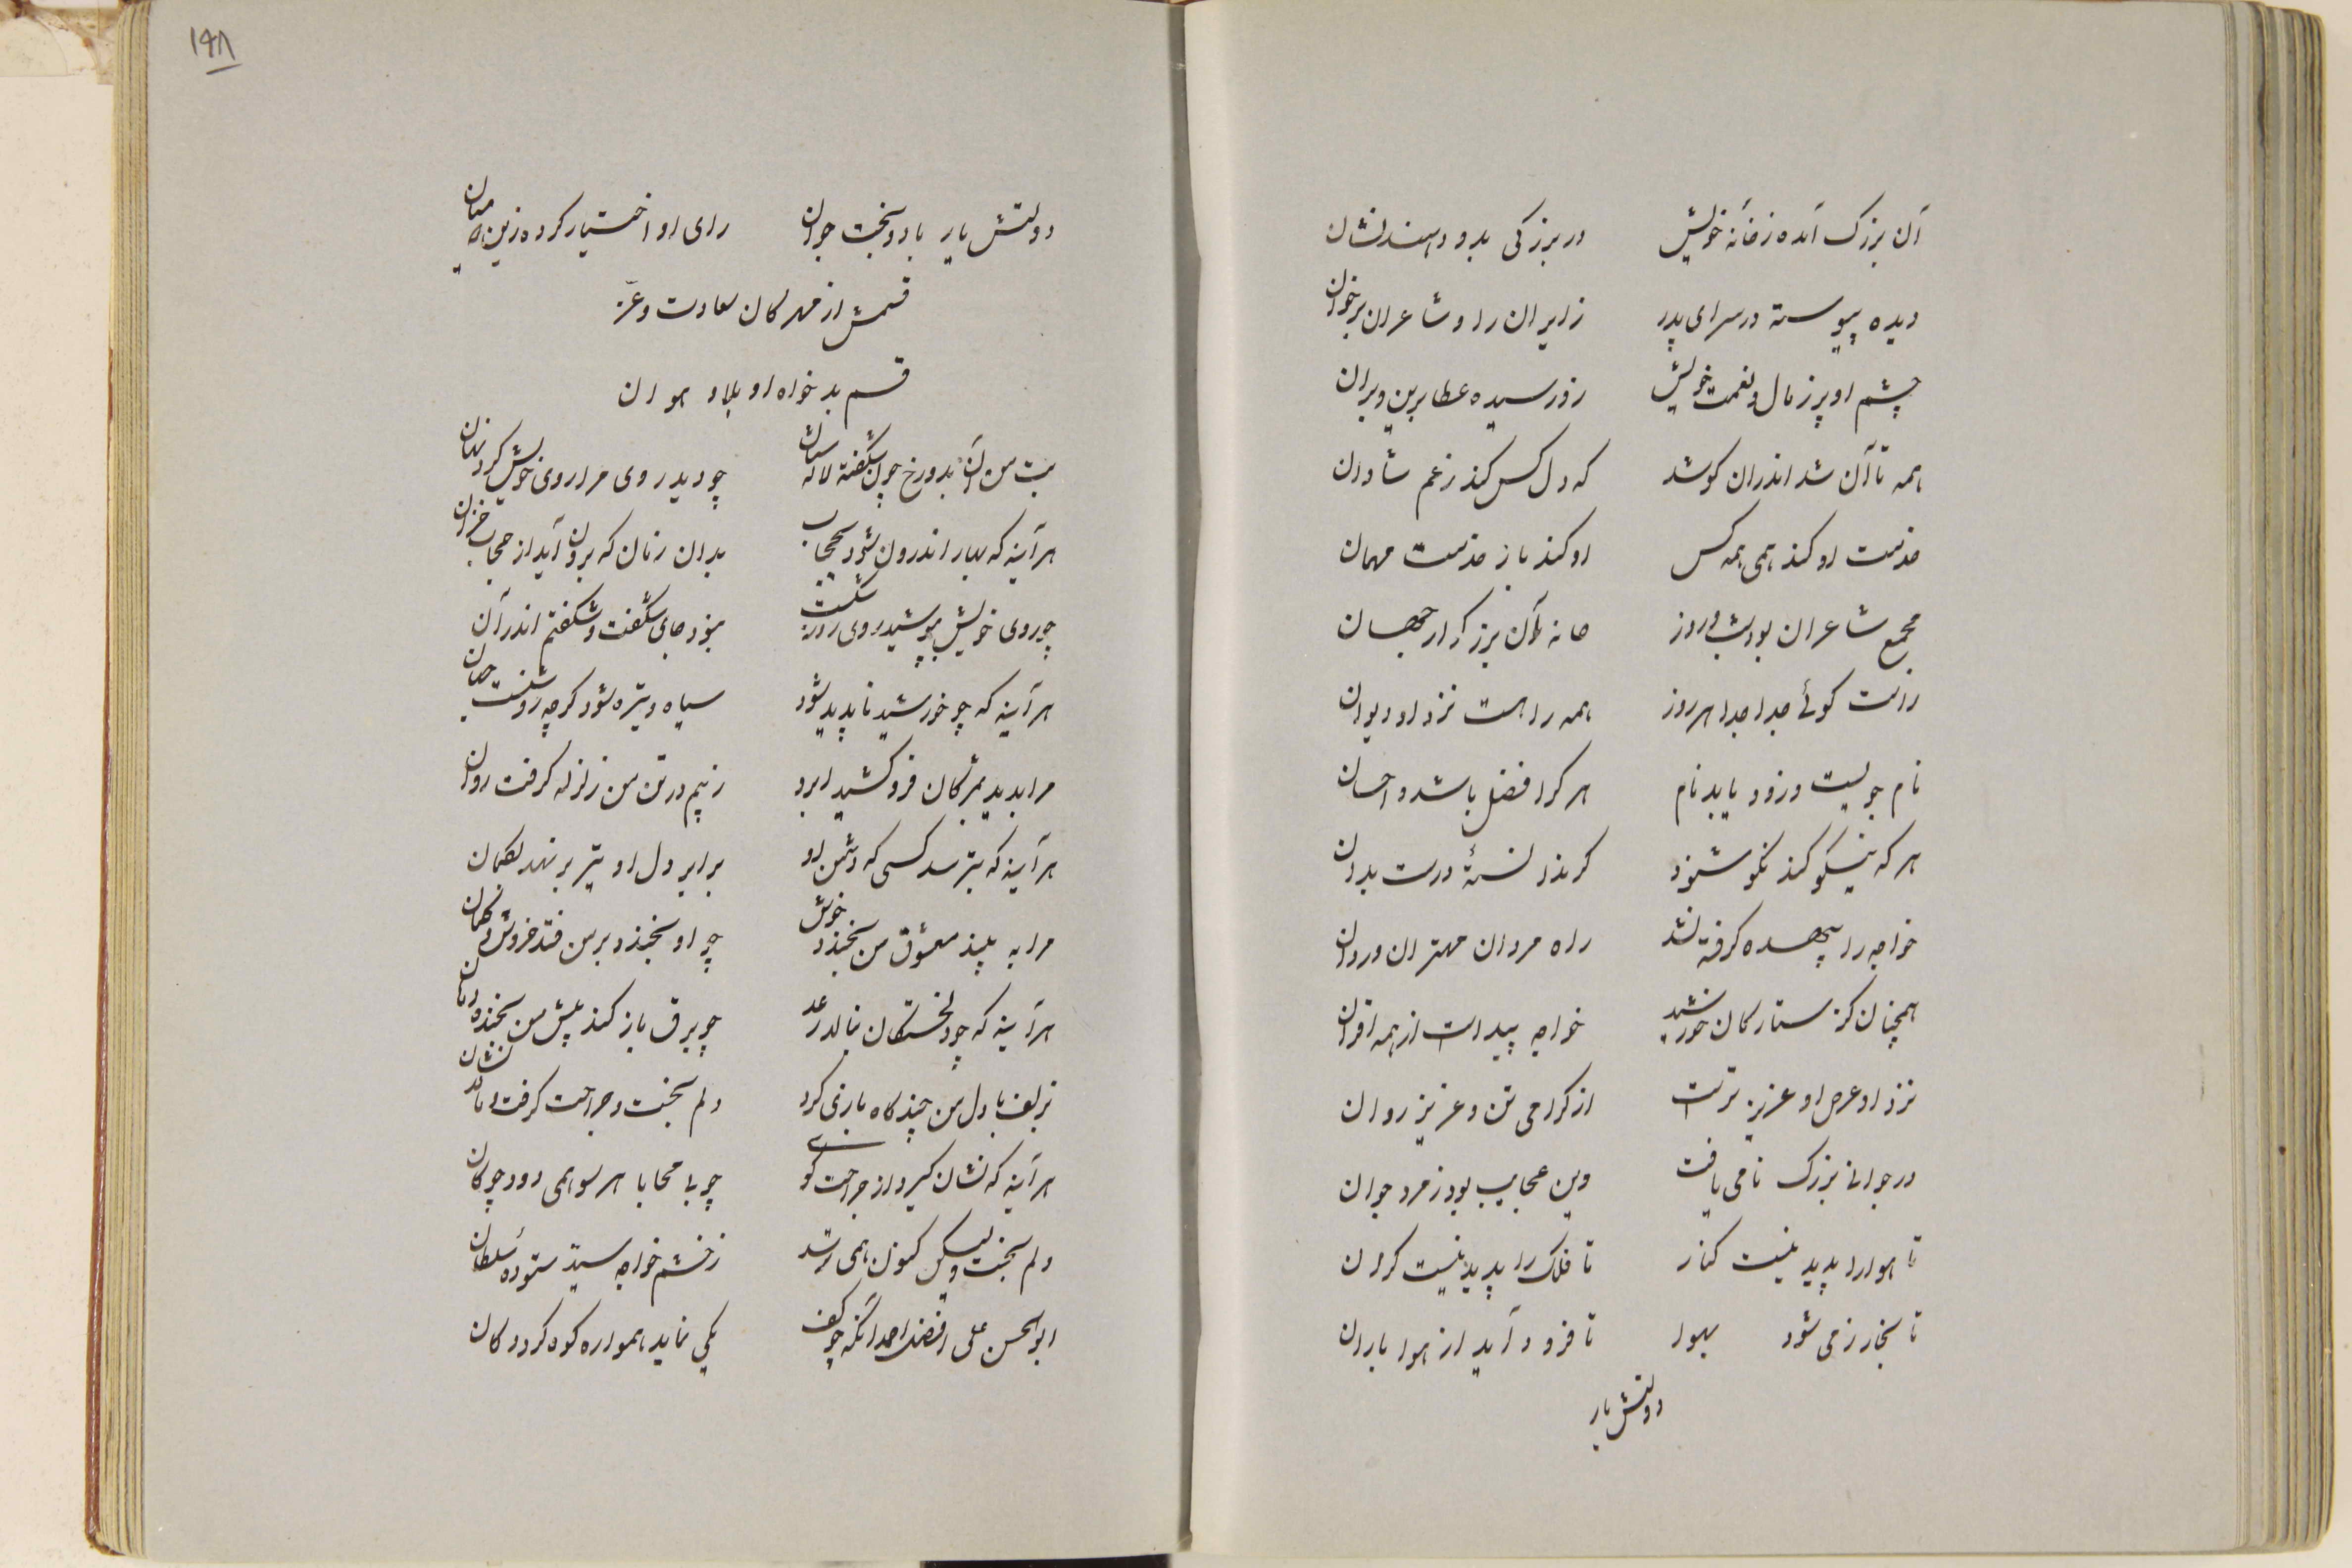 آن بزرگ آمده ز خانهٔ خویش در بزرگی بدو دهند نشان
دیده پیوسته در سرای پدر زایران را و شاعران بر خوان
چشم او پر ز مال و نعمت خویش زو رسیده عطا برین و بران
همه تا آن شد اندران کوشد که دل کس کند ز غم شادان
خدمت او کند همی همه کس او کند باز خدمت مهمان
مجمع شاعران بود شب و روز خانهٔ آن بزرگوار جهان
راست گوئی جدا جدا هر روز همه را هست نزد او دیوان
نام جویست و زود یابد نام هر کرا فضل باشد و احسان
هر که نیکو کند نکو شنود گر ندانستهٔ درست بدان
خواجه را بیهده گرفته نشد راه مردان مهتران و ردان
همچنان کز ستارگان خورشید خواجه پیداست از همه اقران
نزد او عرض او عزیزترست از گرامی تن و عزیز روان
در جوانی بزرگ نامی یافت وین عجایب بود ز مرد جوان
تا هوا را پدید نیست کنار تا فلک را پدید نیست کران
تا بخار زمی شود بهوا تا فرود آید از هوا باران
دولتش یار
۱۴۸
دولتش یار باد و بخت جوان رای او اختیار کرده زین میان
قسمش از مهرگان سعادت و عز
قسم بدخواه او بلا و هوان
بت من آن بدو رخ چون شکفته لاله ستان چو دید روی مرا روی خویش کرد نهان
هر آینه که بهار اندرون شود بحجاب بدان زمان که برون آید از حجاب خزان
چو روی خویش بپوشید روی روز بشکست نبود جای شگفت و شگفتم اندر آن
هر آینه که چو خورشید ناپدید شود سیاه و تیره شود گرچه روشنست جهان
مرا بدید بمژگان فرو کشید ابرو ز بیم در تن من زلزله گرفت روان
هر آینه که بترسد کسی که دشمن او برابر دل او تیر بر نهد بکمان
مرا به بیند معشوق من بخندد خوش چو او بخندد بر من فتد خروش و فغان
هر آینه که چو دلخستگان بنالد رعد چو برق باز کند پیش من بخنده دهان
بزلف با دل من چند گاه بازی کرد دلم بخست و جراحت گرفت و ماند نشان
هر آینه که نشان گیرد از جراحت گوی چو بی محابا هر سو همی دود چوگان
دلم بخست ولیکن کنون همی ترسد ز خشم خواجه سید ستودهٔ سلطان
ابو الحسن علی الفضل احمد آنکه چو کف یکی نماید همواره کوه گردد کان